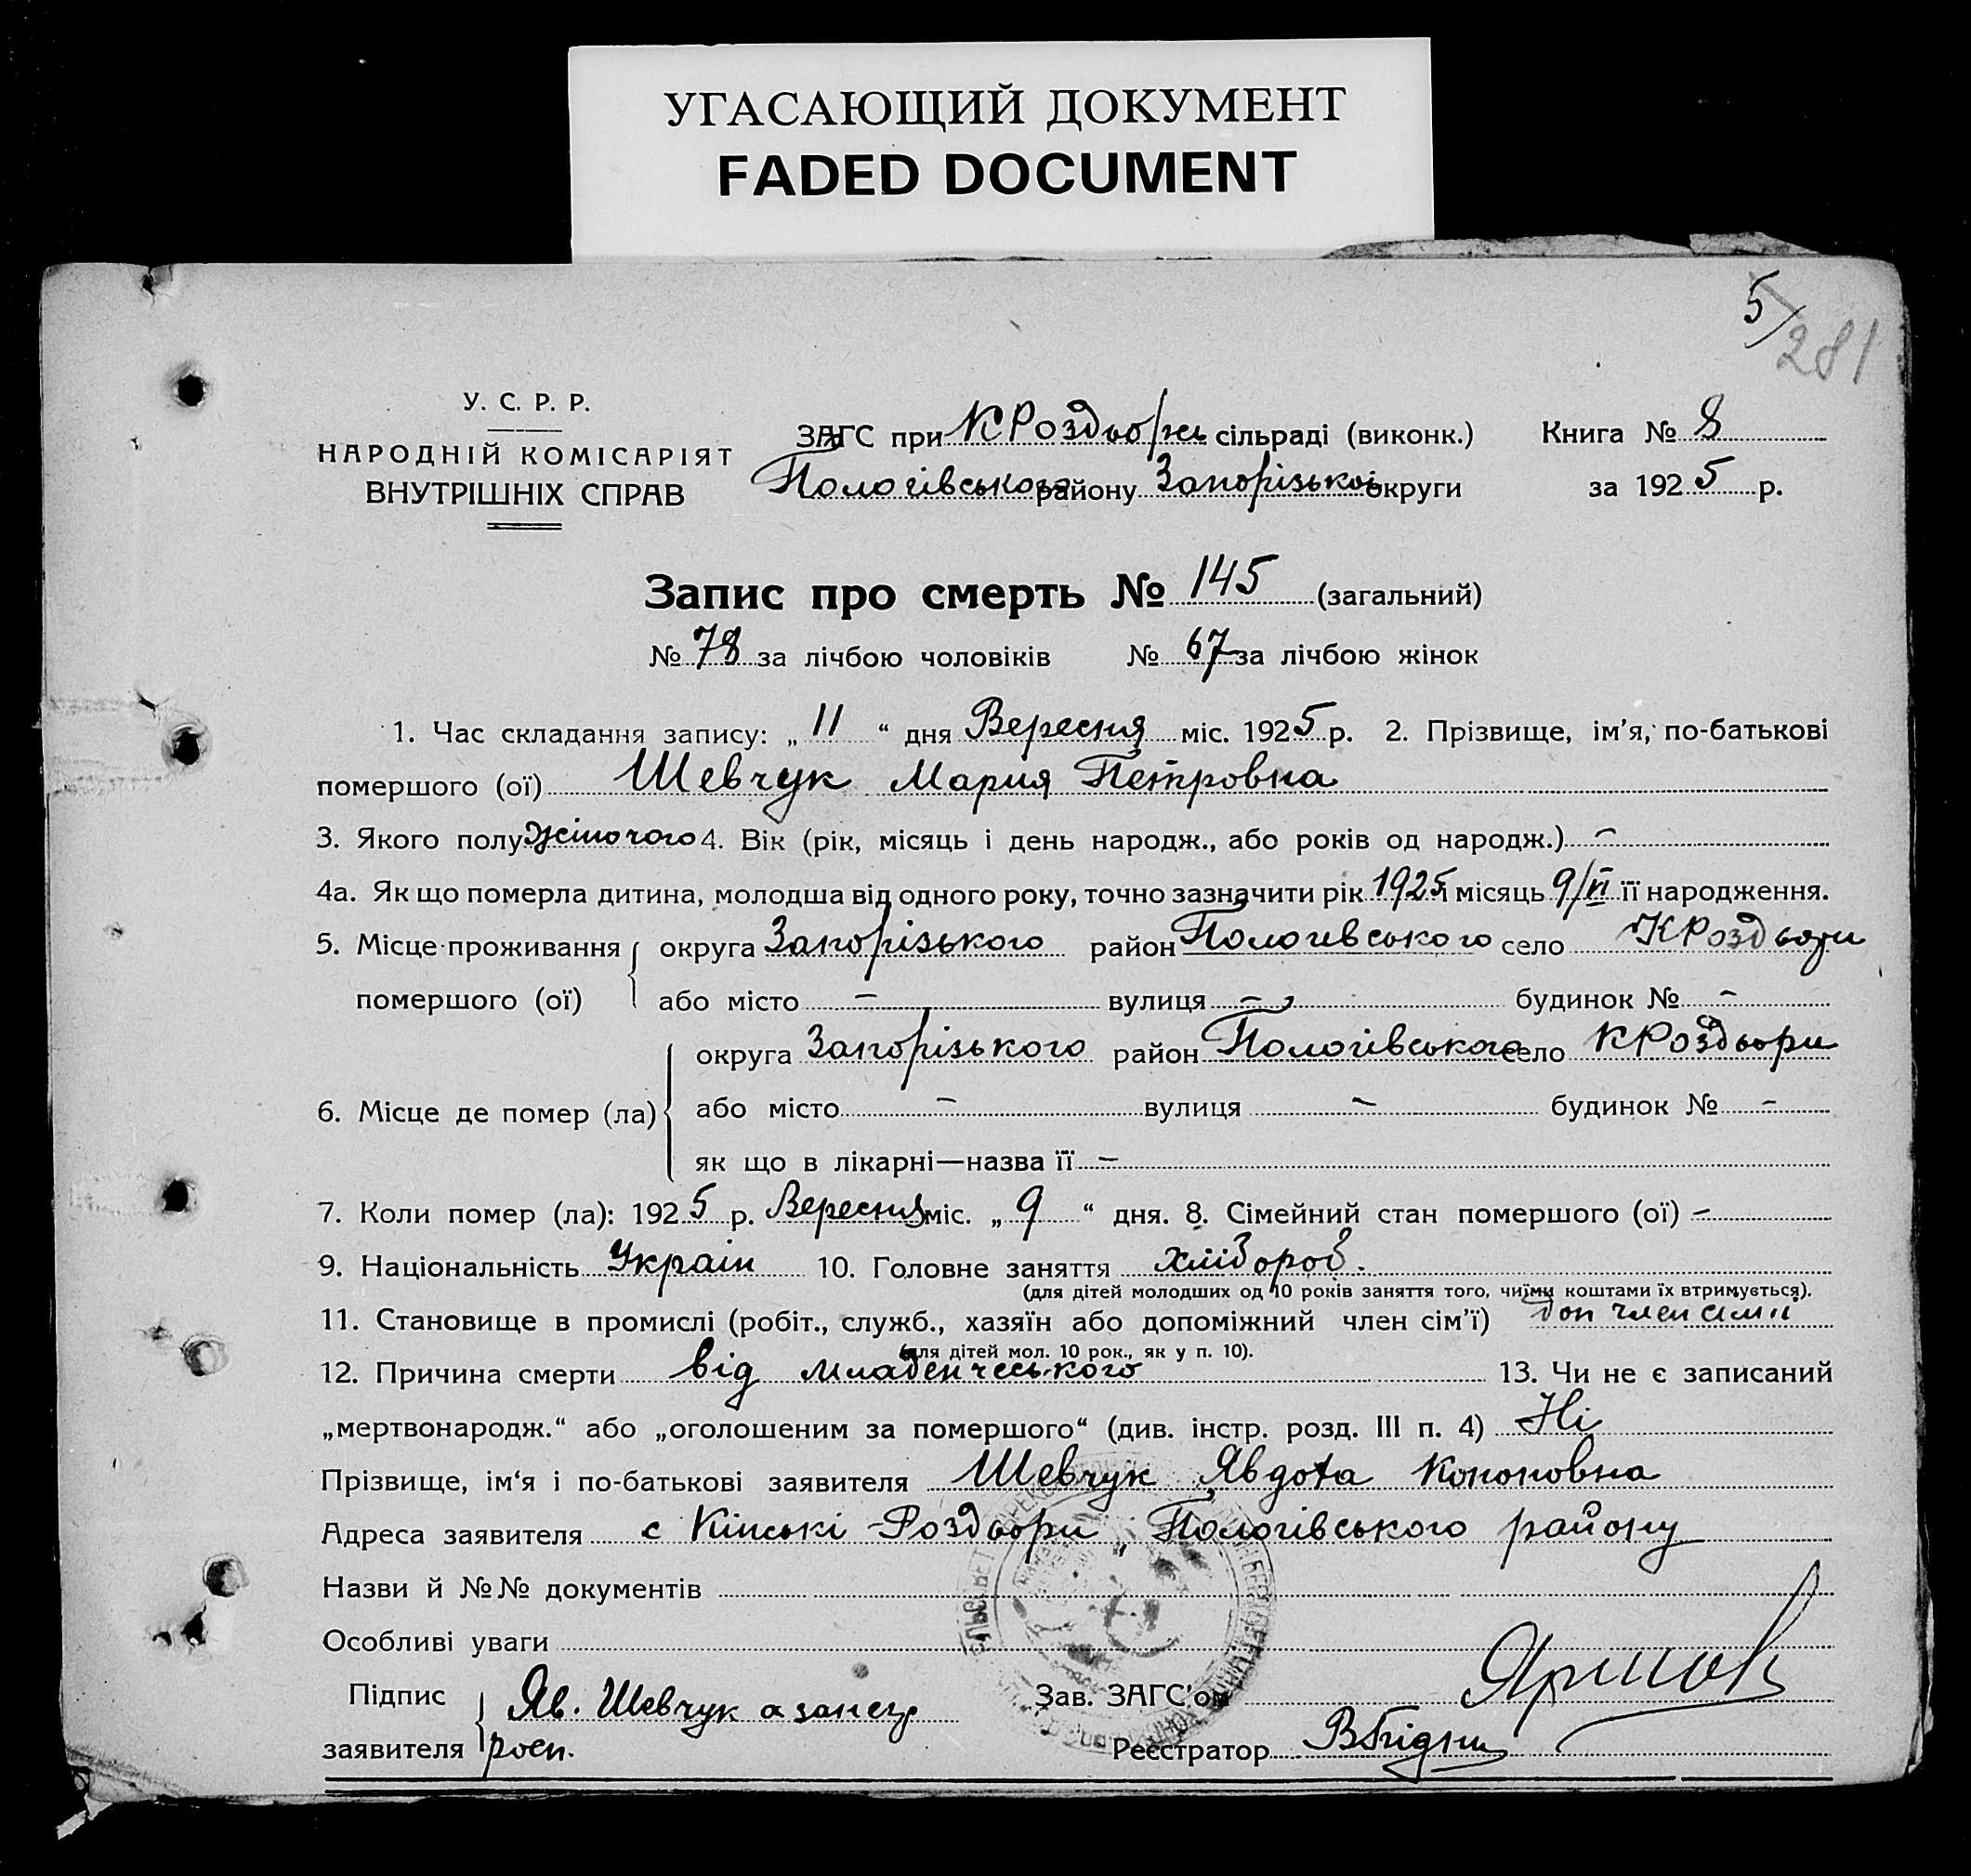 УГАСАЮЩИЙ ДОКУМЕНТ
FADED DOCUMENT
5/
281
У. С. Р. Р.
НАРОДНІЙ КОМІСАРІЯТ
ВНУТРІШНІХ СПРАВ
ЗАГС при КРоздорсь сільраді (виконк.) Книга № 8
Пологівського району Запорізької округи за 1925 р.
Запис про смерть № 145 (загальний)
№ 78 за лічбою чоловіків № 67 за лічбою жінок
1. Час складання запису: „ 11 “ дня Вересня міс. 1925 р. 2. Прізвище, ім'я, по-батькові
помершого (ої) Шевчук Мария Петровна
3. Якого полу жіночого 4. Вік (рік, місяць і день народж., або років од народж.) –
4а. Як що померла дитина, молодша від одного року, точно зазначити рік 1925 і місяць 9/VI її народження.
5. Місце проживання округа Запорізького район Пологівського село КРоздори
помершого (ої) або місто – вулиця – будинок № –
округа Запорізького район Пологівського село КРоздори
6. Місце де помер (ла) або місто – вулиця – будинок № –
як що в лікарні—назва її –
7. Коли помер (ла): 1925 р. Вересня міс. „ 9 “ дня. 8. Сімейний стан помершого (ої) –
9. Національність Україн 10. Головне заняття хлібороб.
(для дітей молодших од 10 років заняття того, чиїми коштами їх втримується).
11. Становище в промислі (робіт., служб., хазяїн або допоміжний член сім'ї) доп член сімї
(для дітей мол. 10 рок., як у п. 10).
12. Причина смерти від младенческого 13. Чи не є записаний
„мертвонародж.“ або „оголошеним за помершого“ (див. інстр. розд. III п. 4) Ні
Прізвище, ім‘я і по-батькові заявителя Шевчук Явдоха Кононовна
Адреса заявителя с Кінські-Роздори, Пологівського району
Назви й №№ документів
Особливі уваги
Підпис Яв. Шевчук а за неї
заявителя росп.
Зав. ЗАГС'ом
Реєстратор